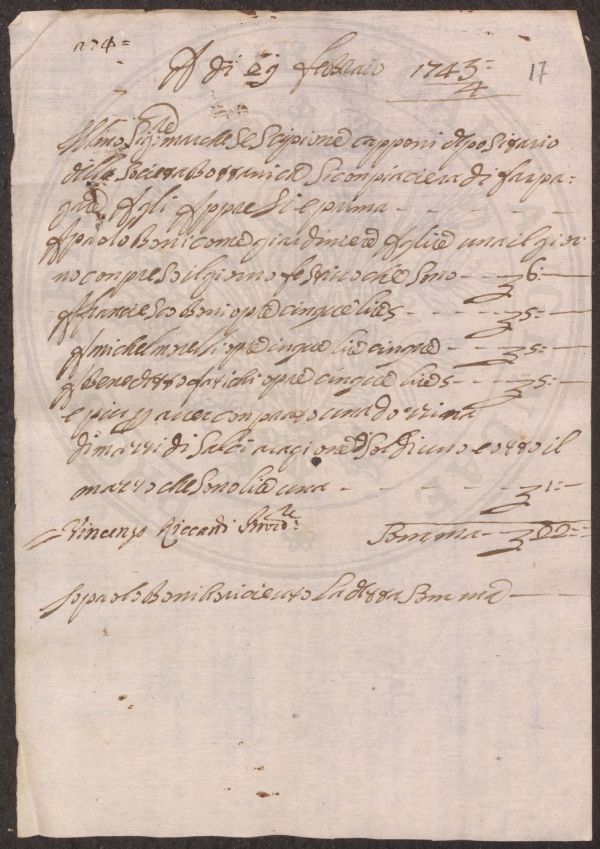 17
A di 29 febbraio 1743/4
Illmo Sigre marchese Scipione capponi depositario
della Societa Bottanicha Si conpiacera di far pa-
gare Agli Appre Si e prima
A paolo Boni come giardiniere A glie una il gior-
no conpreso il giorno festivo che Sono 6:
A francesco Boni opre cinque lire 5 5:
A michel morelli opre cinque lire cinque 5:
A Benedetto farichi opre cinque lire 5 5:
e piu p aver conprato una dozzina
di mazzi di Salci a ragione di Soldi uno e otto il
mazzo che Sono lire una 1:
Vincenzo Riccardi Provre: Somma 22:
Io paolo Boni ho riceuto la detta Somma